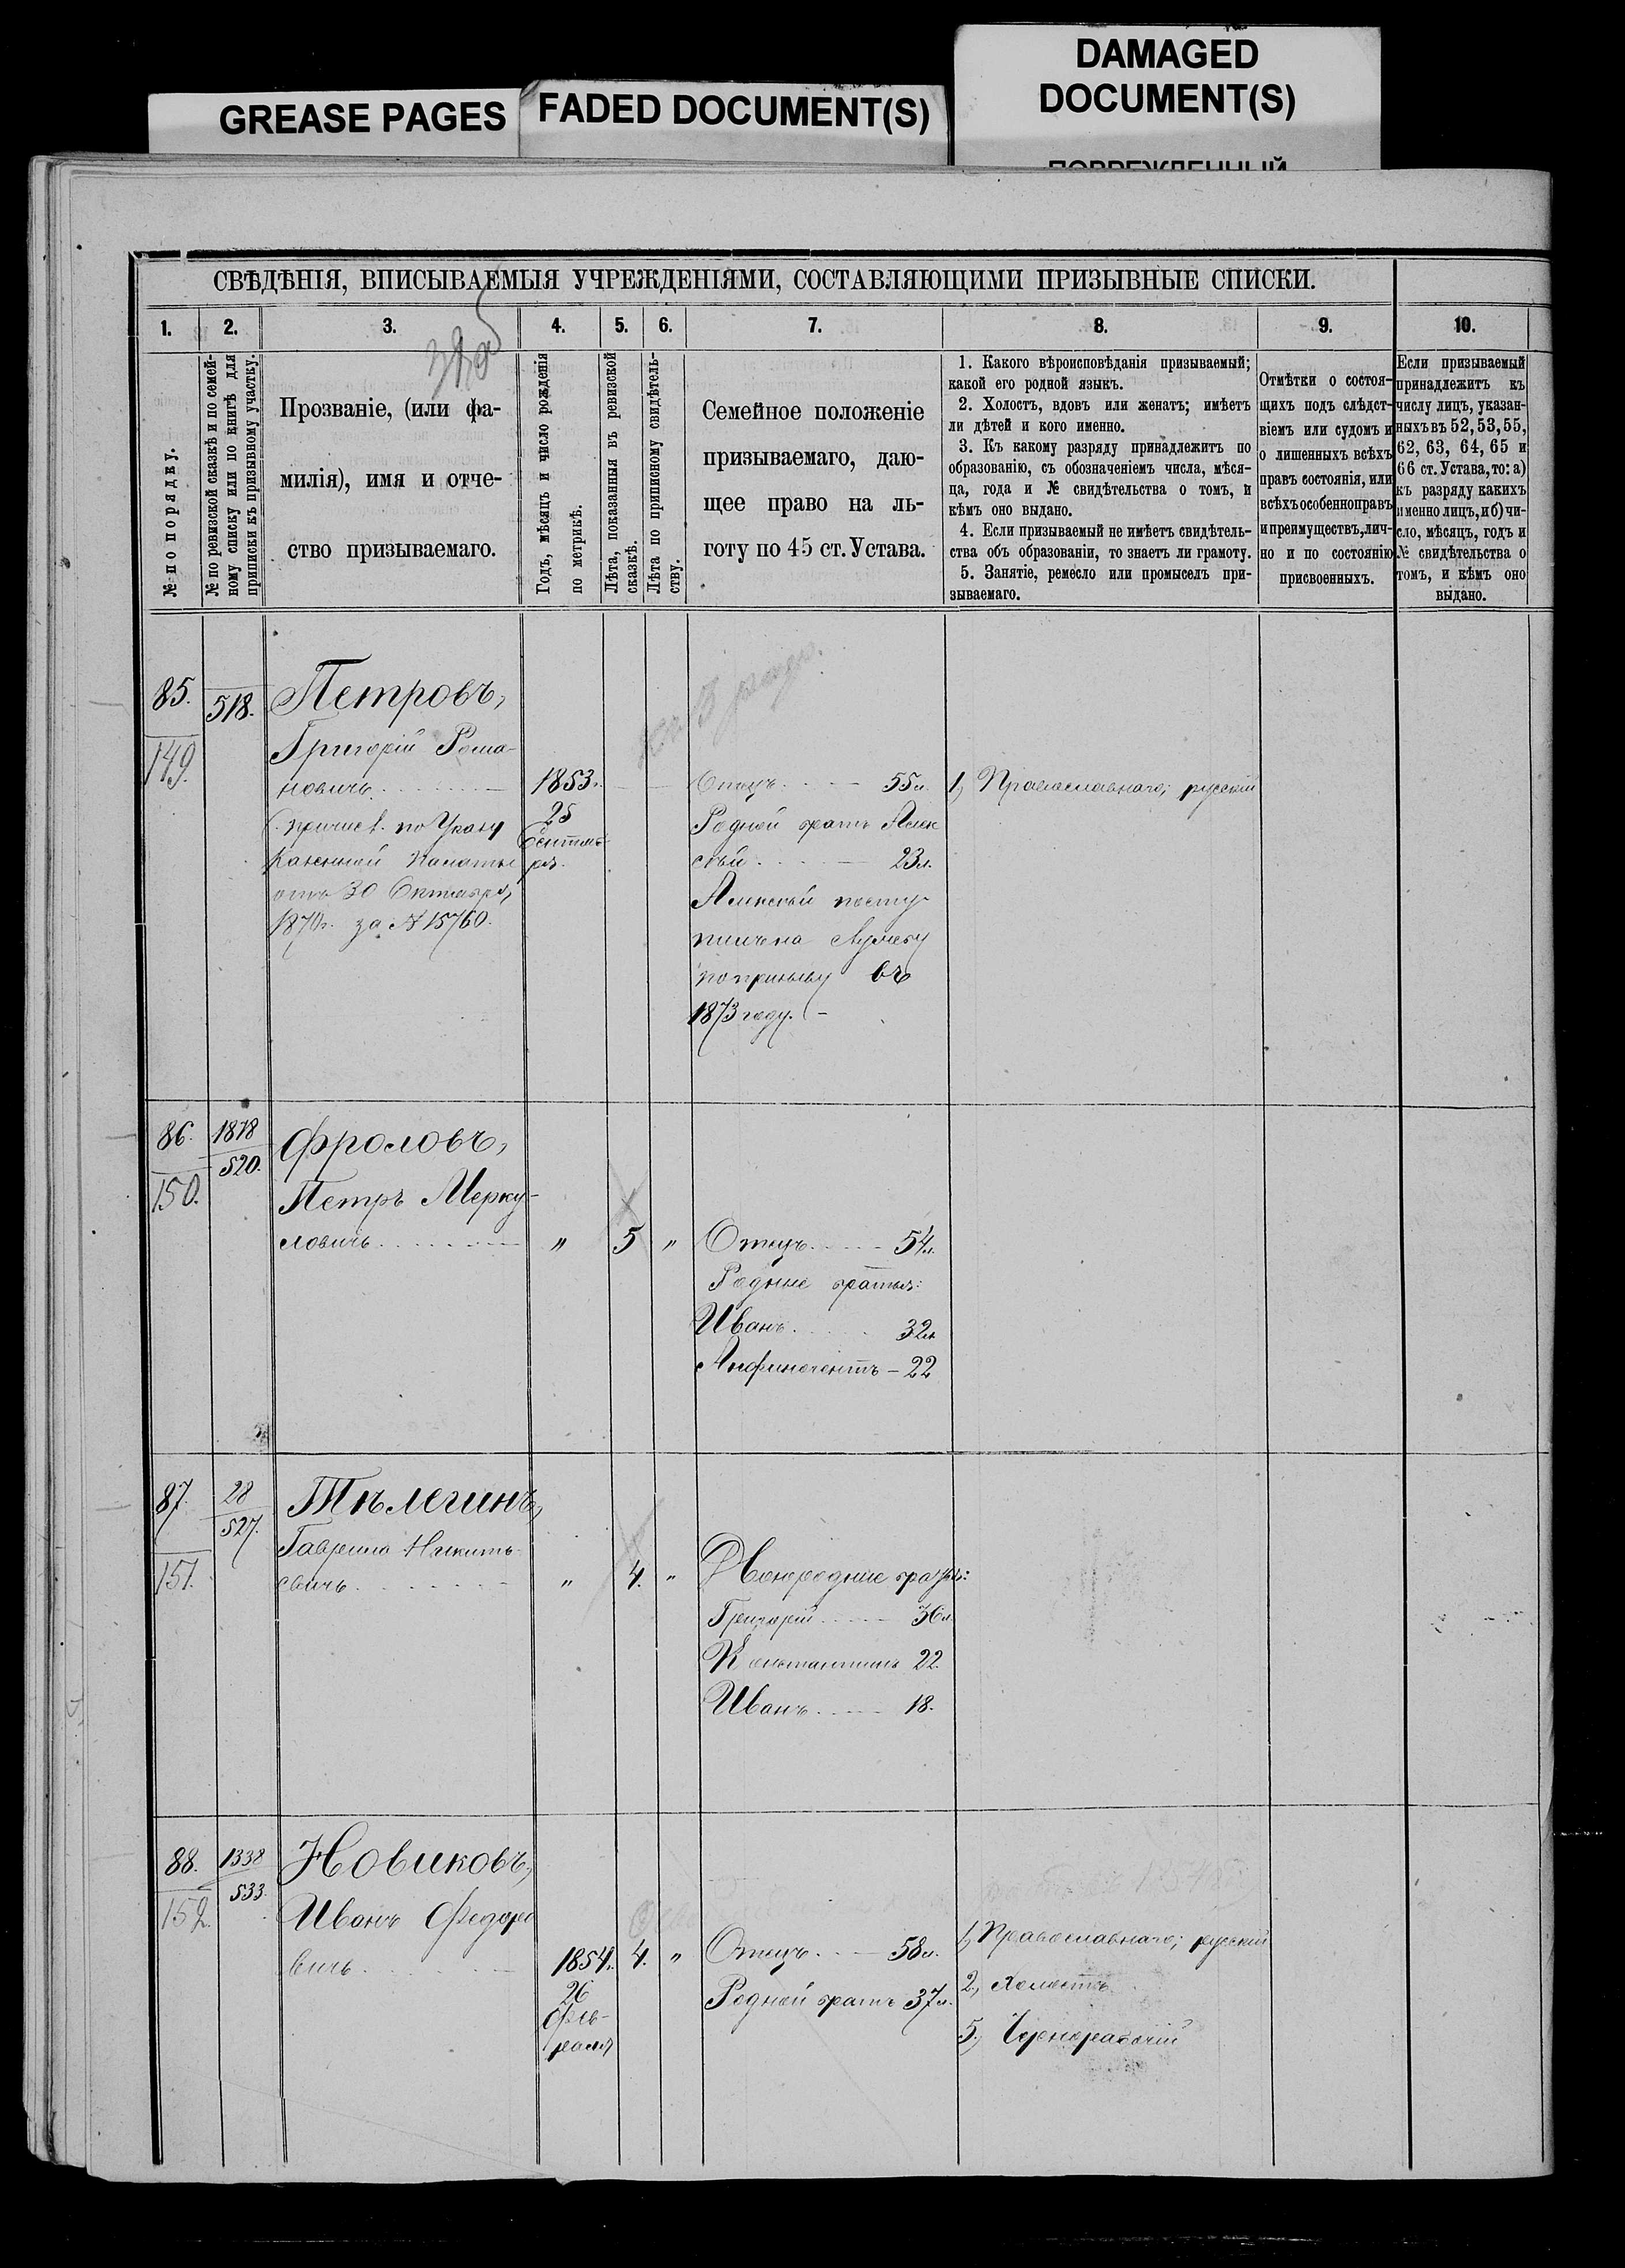 GREASE PAGES
FADED DOCUMENT(S)
DAMAGED
DOCUMENT(S)
СВѢДѢНІЯ, ВПИСЫВАЕМЫЯ УЧРЕЖДЕНІЯМИ, СОСТАВЛЯЮЩИМИ ПРИЗЫВНЫЕ СПИСКИ.
1.
2.
3.
4.
5.
6.
7.
8.
9.
10.
№ по порядку.
№ по ревизской сказкѣ и по семей-
ному списку или по книгѣ для
приписки къ призывному участку.
Прозваніе, (или фа-
милія), имя и отче-
ство призываемаго.
Годъ, мѣсяцъ и число рожденія
по метрикѣ.
Лѣта, показанныя въ ревизской
сказкѣ.
Лѣта по приписному свидѣтель-
ству.
Семейное положеніе
призываемаго, даю-
щее право на ль-
готу по 45 ст. Устава.
1. Какого вѣроисповѣданія призываемый;
какой его родной языкъ.
2. Холостъ, вдовъ или женатъ; имѣетъ
ли дѣтей и кого именно.
3. Къ какому разряду принадлежитъ по
образованію, съ обозначеніемъ числа, мѣся-
ца, года и № свидѣтельства о томъ, и
кѣмъ оно выдано.
4. Если призываемый не имѣетъ свидѣтель-
ства объ образованіи, то знаетъ ли грамоту.
5. Занятіе, ремесло или промыселъ при-
зываемаго.
Отмѣтки о состоя-
щихъ подъ слѣдст-
віемъ или судомъ и
о лишенныхъ всѣхъ
правъ состоянія, или
всѣхъ особенно правъ
и преимуществъ, лич-
но и по состоянію
присвоенныхъ.
Если призываемый
принадлежитъ къ
числу лицъ, указан-
ныхъ въ 52, 53, 55,
62, 63, 64, 65 и
66 ст. Устава, то: а)
къ разряду какихъ
именно лицъ, и б) чи-
сло, мѣсяцъ, годъ и
№ свидѣтельства о
томъ, и кѣмъ оно
выдано.
85.
149.
518.
Петровъ,
Григорій Рома-
новичъ
Причисл. по Указу
Казенной Палаты
отъ 30 Октября,
1870г. за № 15760.
1853г.
25
Сентяб-
ря.
Отецъ 55л.
Родной братъ Алек
сѣй 23л.
Алексѣй посту-
пилъ на службу
по призыву въ
1873 году.
1, Православнаго; русскій
86.
150.
1878
520.
Фроловъ,
Петръ Мерку-
ловичъ
"
5
"
Отецъ 54л.
Родные братья:
Иванъ 32л.
22
87.
151.
28
527.
Тѣлегинъ,
Гаврила Никить-
евичъ
"
4.
"
Двоюродные братья:
Григорій 36л.
Константинъ 22.
Иванъ 18.
88.
152.
1338
533.
Новиковъ,
Иванъ Федоро
вичъ
1854г.
26
Фев-
раля
4.
"
Отецъ 58л.
Родной братъ 37л.
1, Православнаго; русскій
2, Холостъ
5, Чернорабочій